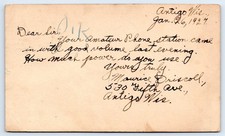 Antigo Wis.
Jan. 26, 1927
Dear Sir
Your amateur Phone station came
in with good volume last evening.
How much power do you use?
Yours truly
Maurice Driscoll,
530 Fifth Ave,
Antigo Wis.